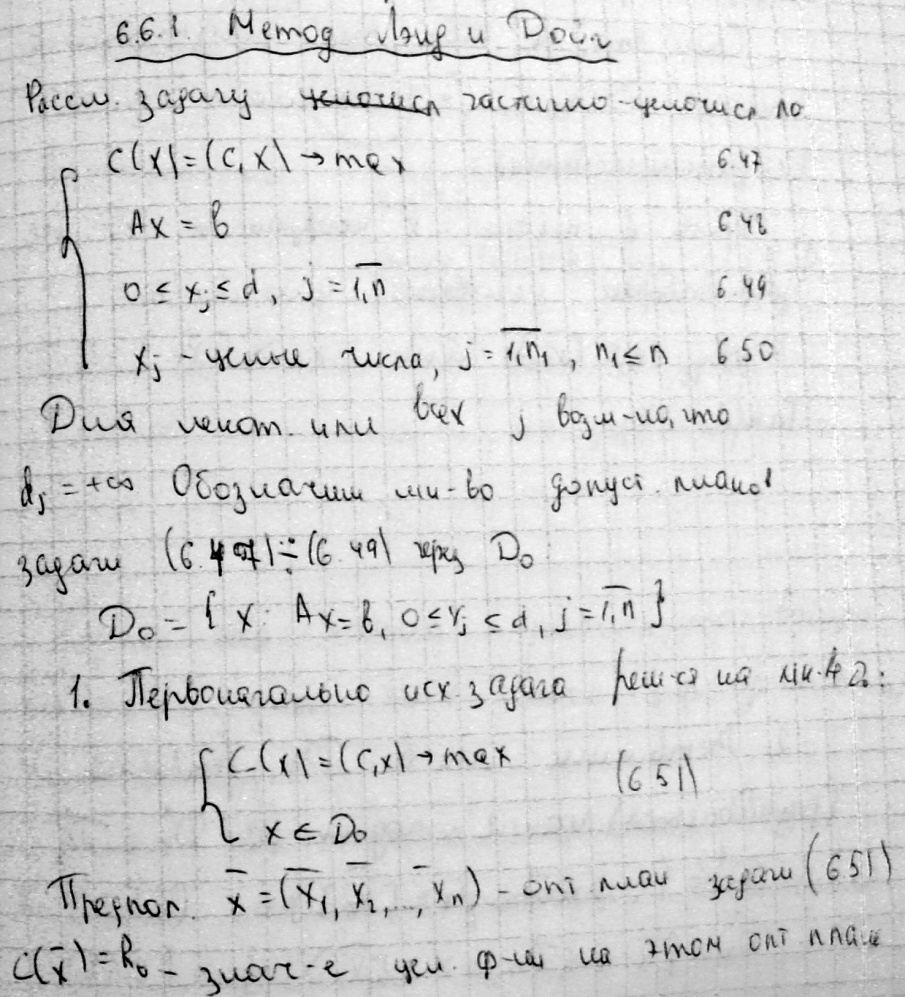 6.6.1 Метод Лэнд и Дойг
Рассм. задачу целочисл частично-целочисл ло
C(X)=(C,X)→max 6.47
AX = b 6.48
0 ≤ xj ≤ d, j = 1,n 6.49
xj - целые числа, j = 1,n1, n1 ≤ n 6.50
Для некот. или всех j возм-но, что
dj = +∞ Обозначим мн-во допуст. планов
задачи (6.47)÷(6.49) через D0
D0 = { X: AX = b, 0 ≤ xj ≤ d, j = 1,n }
1. Первоначально исх. задача реш-ся на мн-ве:
C(x) = (C,x) → max (6.51)
x ∈ D0
Предпол. x̄ = (x̄1, x̄2, .., x̄n) - опт план задачи (6.51)
C(x̄) = R0 - знач-е цел. ф-ии на этом опт плане